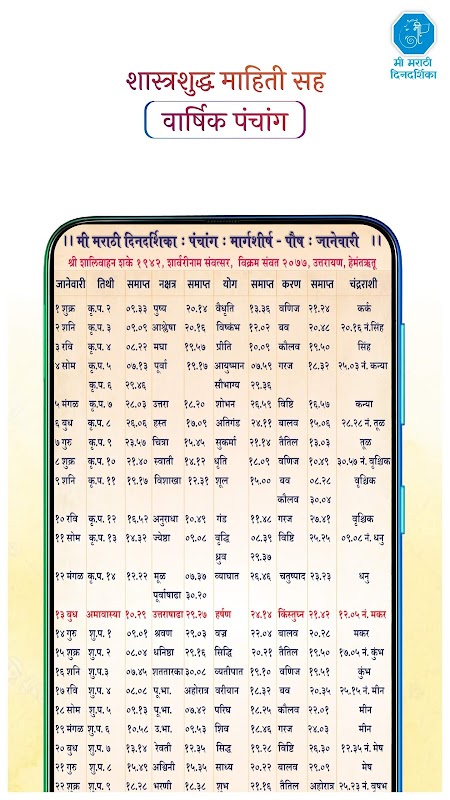 मी मराठी
दिनदर्शिका
शास्त्रशुद्ध माहिती सह
वार्षिक पंचांग
।। मी मराठी दिनदर्शिका : पंचांग : मार्गशीर्ष - पौष : जानेवारी ।।
श्री शालिवाहन शके १९४२, शार्वरीनाम संवत्सर, विक्रम संवत २०७७, उत्तरायण, हेमंतऋतू
जानेवारी तिथी समाप्त नक्षत्र समाप्त योग समाप्त करण समाप्त चंद्रराशी
१ शुक्र कृ.प. २ ०९.३३ पुष्य २०.१४ वैधृति १३.३६ वणिज २१.२४ कर्क
२ शनि कृ.प. ३ ०९.०९ आश्लेषा २०.१६ विष्कंभ १२.०२ बव २०.४८ २०.१६ नं.सिंह
३ रवि कृ.प. ४ ०८.२२ मघा १९.५७ प्रीति १०.०९ कौलव १९.५० सिंह
४ सोम कृ.प. ५ ०७.१३ पूर्वा १९.१७ आयुष्मान ०७.५९ गरज १८.३२ २५.०३ नं. कन्या
कृ.प. ६ २९.४६ सौभाग्य २९.३६
५ मंगळ कृ.प. ७ २८.०३ उत्तरा १८.२० शोभन २६.५९ विष्टि १६.५७ कन्या
६ बुध कृ.प. ८ २६.०६ हस्त १७.०९ अतिगंड २४.११ बालव १५.०६ २८.२८ नं. तूळ
७ गुरु कृ.प. ९ २३.५७ चित्रा १५.४५ सुकर्मा २१.१४ तैतिल १३.०३ तूळ
८ शुक्र कृ.प. १० २१.४० स्वाती १४.१२ धृति १८.०९ वणिज १०.४९ ३०.५७ नं. वृश्चिक
९ शनि कृ.प. ११ १९.१७ विशाखा १२.३१ शूल १५.०० बव ०८.२८ वृश्चिक
कौलव ३०.०४
१० रवि कृ.प. १२ १६.५२ अनुराधा १०.४९ गंड ११.४८ गरज २७.४१ वृश्चिक
११ सोम कृ.प. १३ १४.३२ ज्येष्ठा ०९.०८ वृद्धि ०८.३९ विष्टि २५.२५ ०९.०८ नं. धनु
ध्रुव २९.३७
१२ मंगळ कृ.प. १४ १२.२२ मूळ ०७.३७ व्याघात २६.४६ चतुष्पाद २३.२३ धनु
पूर्वाषाढा ३०.२०
१३ बुध अमावास्या १०.२९ उत्तराषाढा २९.२७ हर्षण २४.१४ किंस्तुघ्न २१.४२ १२.०५ नं. मकर
१४ गुरु शु.प. १ ०९.०१ श्रवण २९.०३ वज्र २२.०४ बालव २०.२८ मकर
१५ शुक्र शु.प. २ ०८.०४ धनिष्ठा २९.१६ सिद्धि २०.२१ तैतिल १९.५० १७.०५ नं. कुंभ
१६ शनि शु.प.३ ०७.४५ शततारका ३०.०८ व्यतीपात १९.१० वणिज १९.५१ कुंभ
१७ रवि शु.प. ४ ०८.०८ पू.भा. अहोरात्र वरीयान १८.३२ बव २०.३५ २५.१५ नं. मीन
१८ सोम शु.प. ५ ०९.१३ पू.भा. ०७.४२ परिघ १८.२५ कौलव २२.०१ मीन
१९ मंगळ शु.प. ६ १०.५८ उ.भा. ०९.५३ शिव १८.४६ गरज २४.०३ मीन
२० बुध शु.प. ७ १३.१४ रेवती १२.३५ सिद्ध १९.२८ विष्टि २६.३० १२.३५ नं. मेष
२१ गुरु शु.प. ८ १५.४९ अश्विनी १५.३५ साध्य २०.२२ बालव २९.०९ मेष
२२ शुक्र शु.प. ९ १८.२८ भरणी १८.३८ शुभ २१.१६ तैतिल अहोरात्र २५.२३ नं. वृषभ